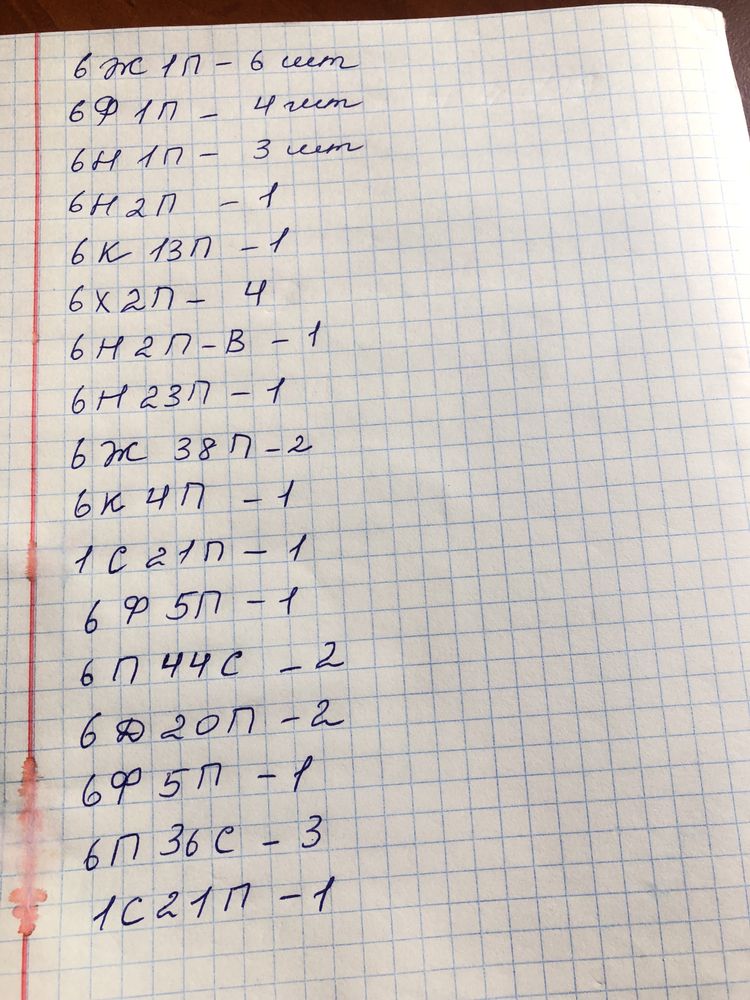 6Ж1П - 6 шт
6Ф1П - 4 шт
6Н1П - 3 шт
6Н2П - 1
6К13П - 1
6Х2П - 4
6Н2П-В - 1
6Н23П - 1
6Ж38П - 2
6К4П - 1
1С21П - 1
6Ф5П - 1
6П44С - 2
6Д20П - 2
6Ф5П - 1
6П36С - 3
1С21П - 1